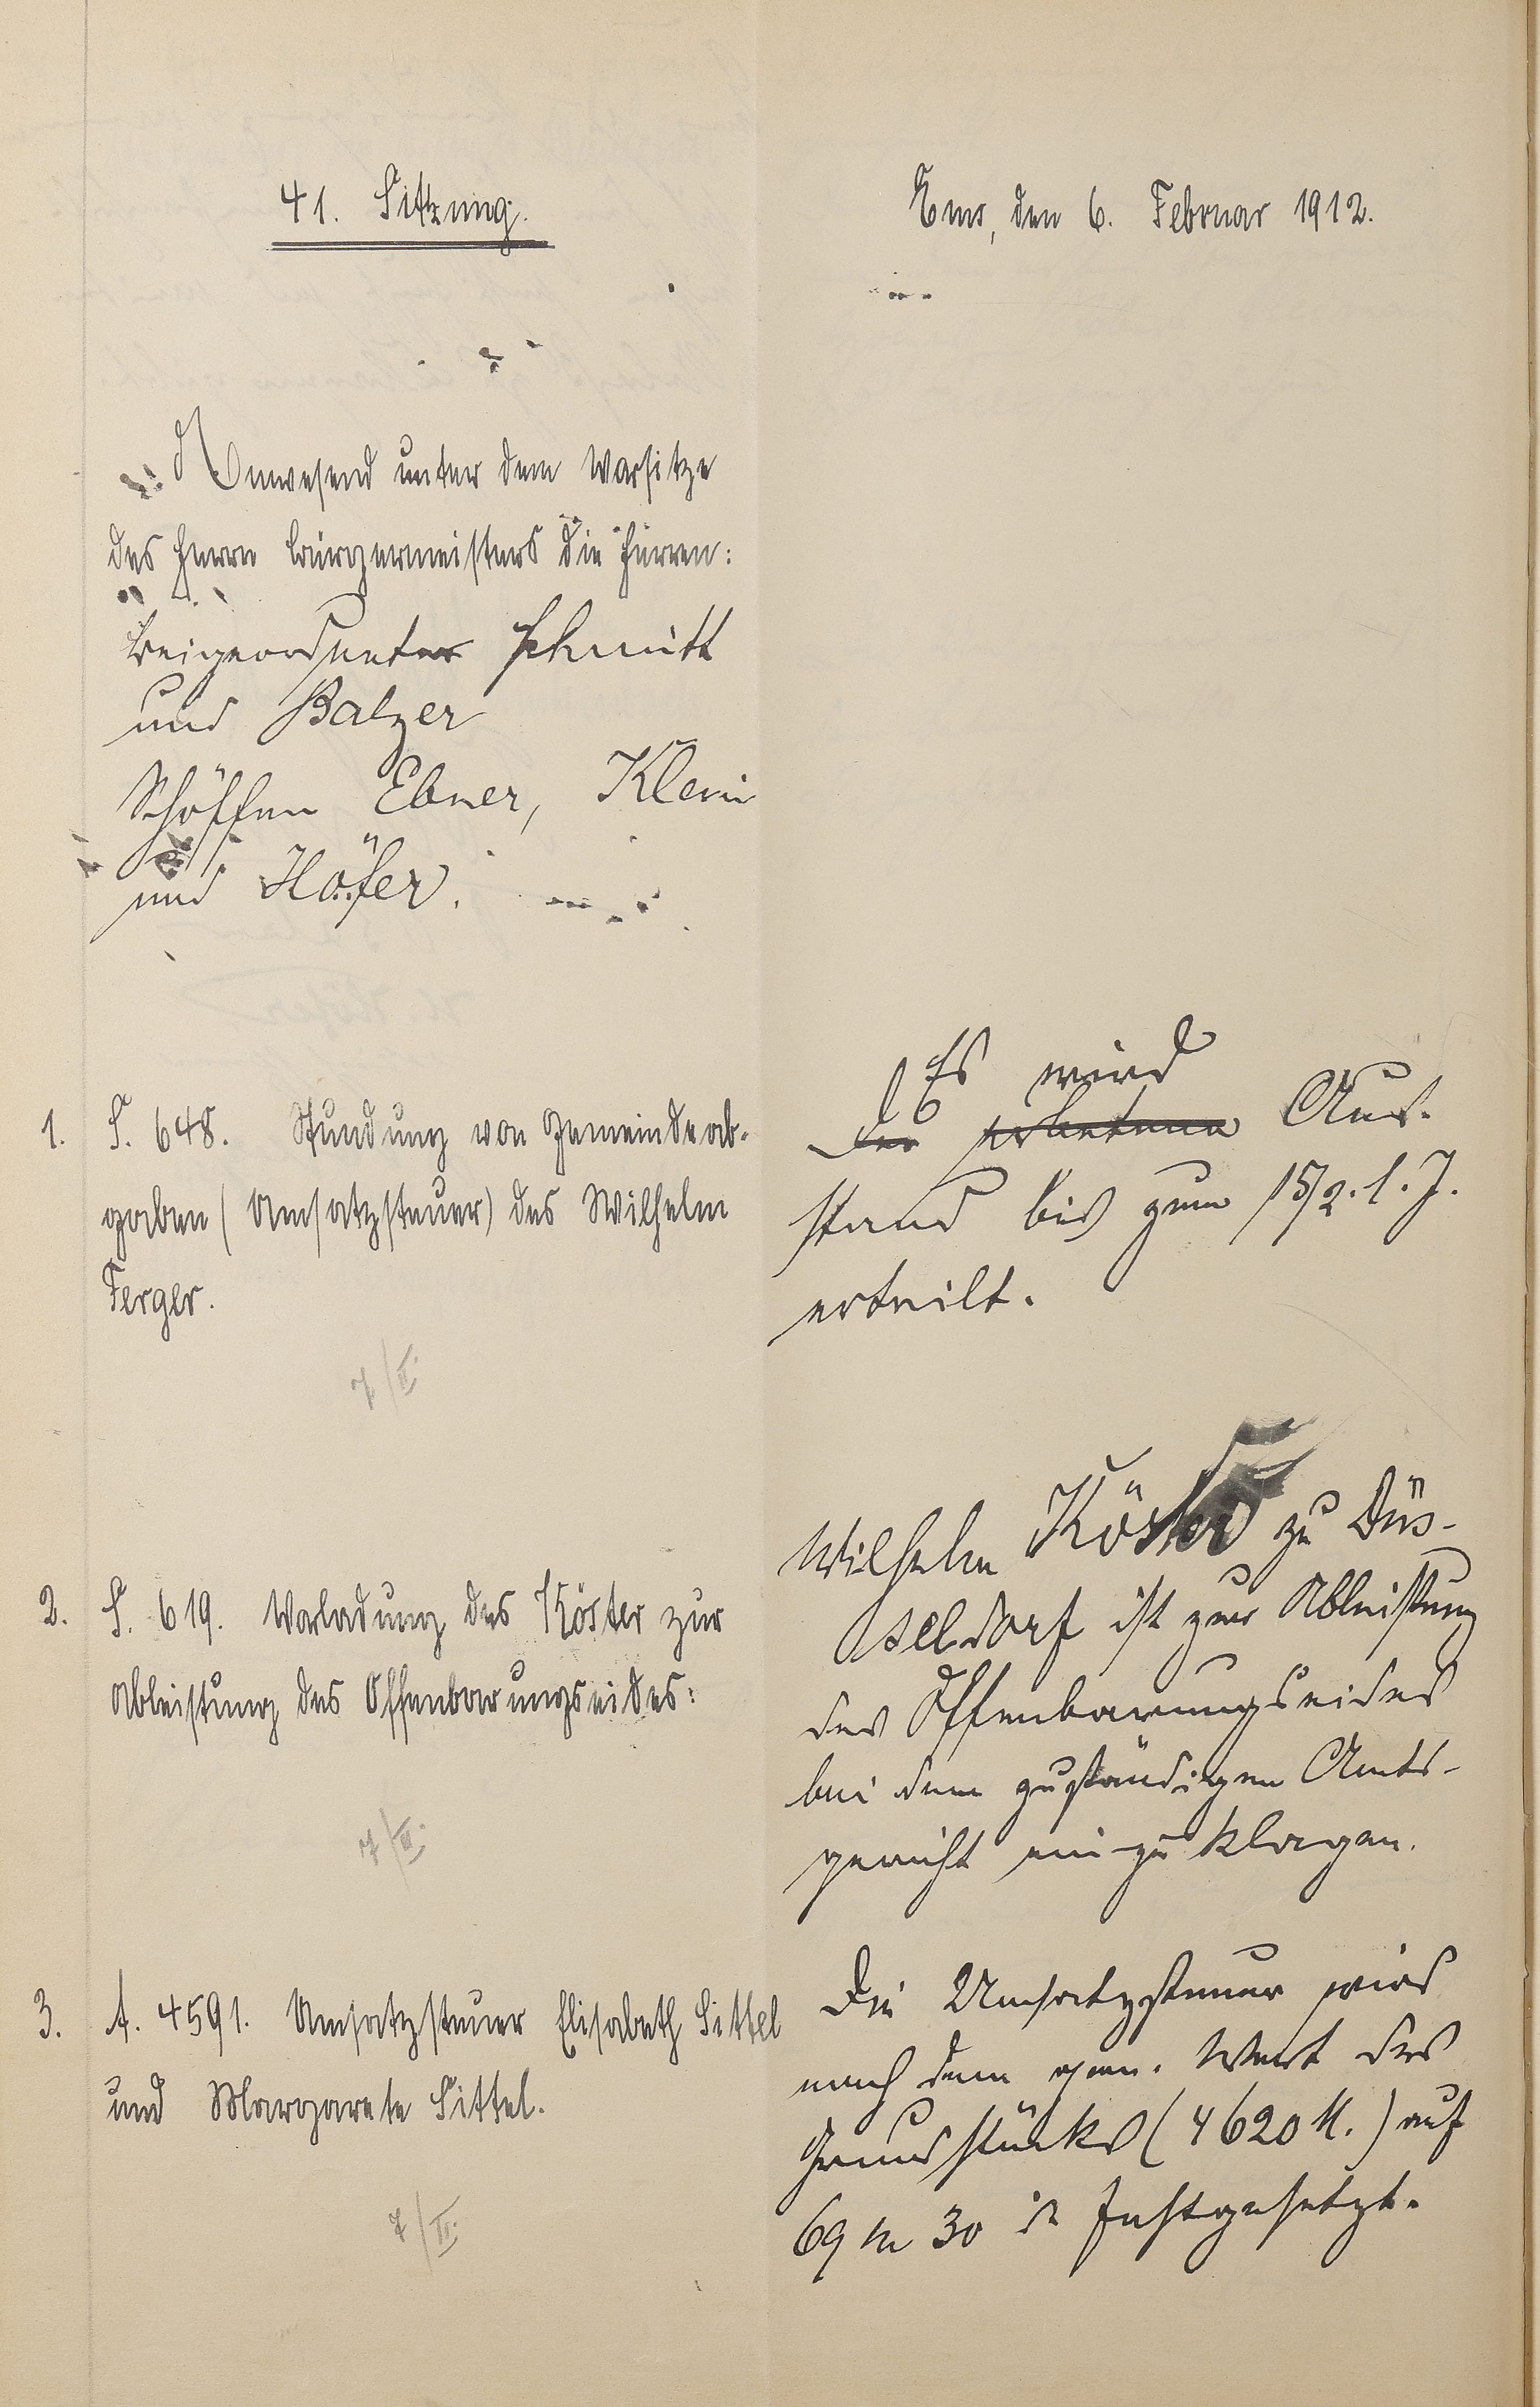 41. Sitzung.
Ems, den 6. Februar 1912.
Anwesend unter dem Vorsitze
des Herrn Bürgermeisters die Herren:
Beigeordneter Schmitt
und Balzer
Schöffen Ebner, Klein
und Höfer.
1. S. 648. Stundung von Gemeindeab-
gaben (Umsatzsteuer) des Wilhelm
Ferger.
7/II.
Es wird
der erbetene Aus-
stand bis zum 15/2. l. J.
erteilt.
2. S. 619. Vorladung des Köster zur
Ableistung des Offenbarungseides:
7/II.
Wilhelm Köster zu Düs-
seldorf ist zur Ableistung
des Offenbarungseides
bei dem zuständigen Amts-
gericht einzuklagen.
3. A. 4591. Umsatzsteuer Elisabeth Sittel
und Margarete Sittel.
7/II.
Die Umsatzsteuer wird
nach dem gem. Wert des
Grundstücks (4620 M.) auf
69 M 30 ₰ festgesetzt.